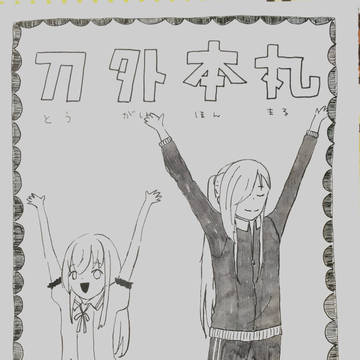 刀外本丸
とう がい ほん まる